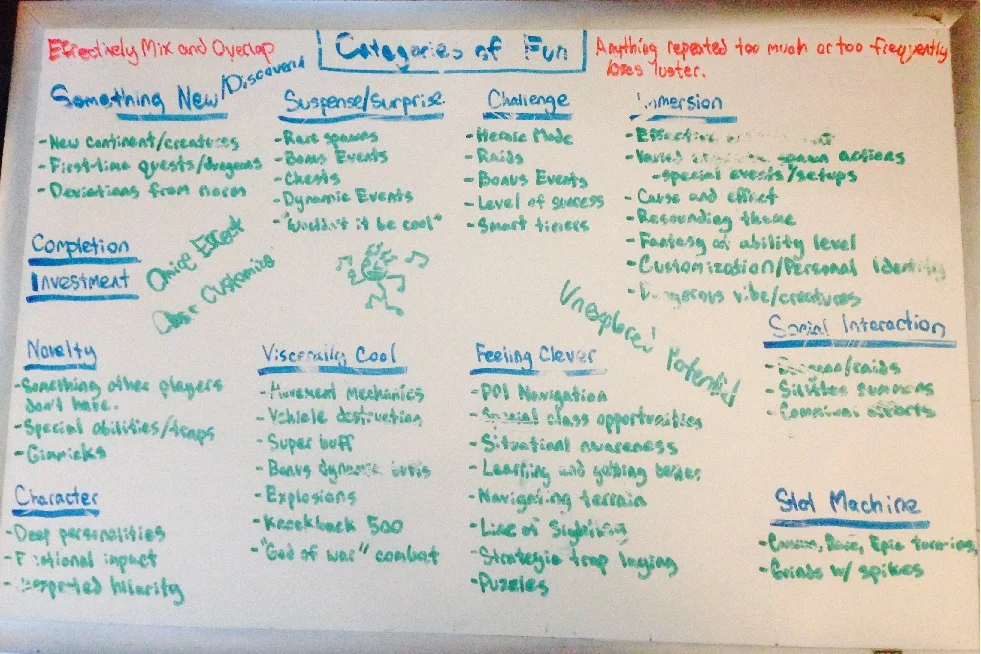 Effectively Mix and Overlap
Categories of Fun
Anything repeated too much or too frequently
loses luster.
Something New/Discovery
- New continent/creatures
- First-time quests/dungeons
- Deviations from norm
Suspense/Surprise
- Rare spawns
- Bonus Events
- Chests
- Dynamic Events
- "Wouldn't it be cool"
Challenge
- Heroic Mode
- Raids
- Bonus Events
- Level of success
- Smart timers
Immersion
- Effective
- Varied spawn actions
- special events/setups
- Cause and effect
- Resounding theme
- Fantasy of ability level
- Customization/Personal Identity
- Dangerous vibe/creatures
Completion
Investment
Effect
Customize
Unexplored Potential
Novelty
- Something other players
don't have.
- Special abilities/traps
- Gimmicks
Viscerally Cool
- Movement mechanics
- Vehicle destruction
- Super buff
- Bonus dynamic
- Explosions
- Knockback 500
- "God of war" combat
Feeling Clever
- POI Navigation
- Special class opportunities
- Situational awareness
- Learning and getting better
- Navigating terrain
- Line of Sighting
- Strategic trap laying
- Puzzles
Social Interaction
- Dungeon/raids
- summons
- Communal efforts
Character
- Deep personalities
- Emotional impact
- Unexpected hilarity
Slot Machine
- Common, Rare, Epic
- Grinds w/ spikes